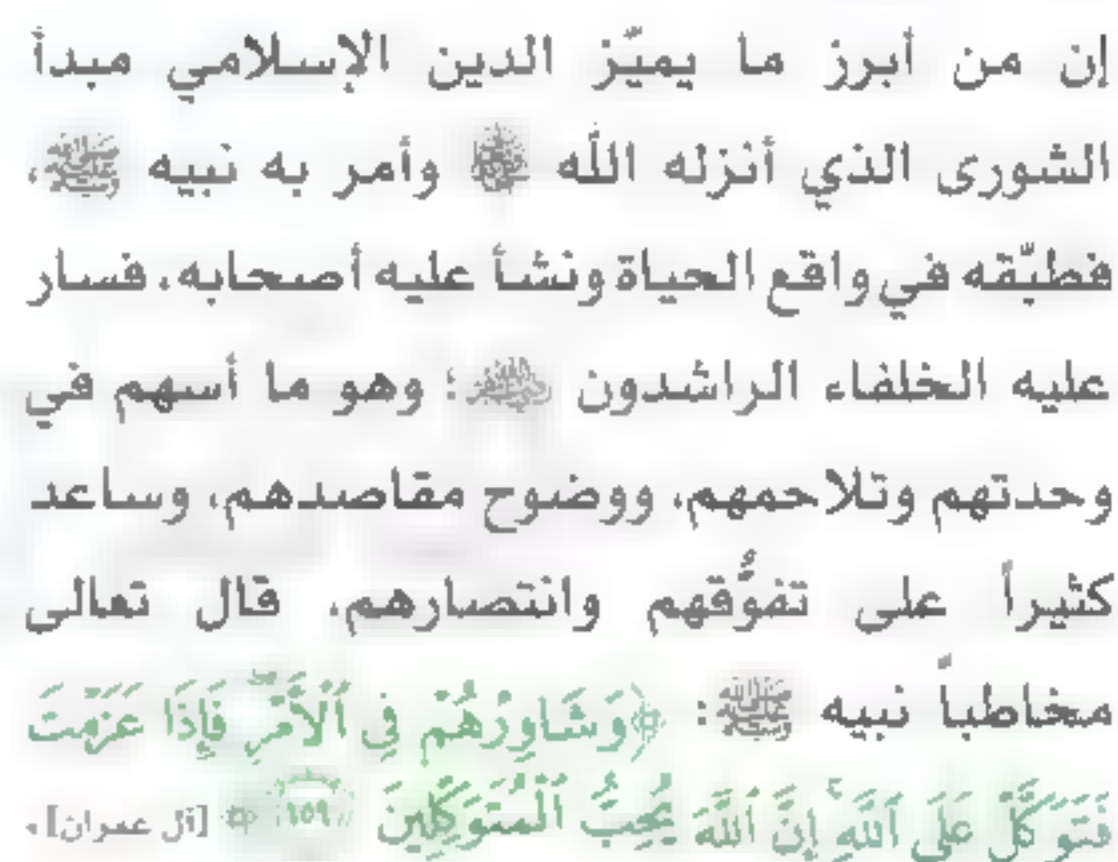 إن من أبرز ما يميّز الدين الإسلامي مبدأ
الشورى الذي أنزله الله ﷻ وأمر به نبيه ﷺ،
فطبّقه في واقع الحياة ونشأ عليه أصحابه، فسار
عليه الخلفاء الراشدون ؛ وهو ما أسهم في
وحدتهم وتلاحمهم، ووضوح مقاصدهم، وساعد
كثيراً على تفوُّقهم وانتصارهم، قال تعالى
مخاطباً نبيه ﷺ: ﴿وَشَاوِرْهُمْ فِي ٱلْأَمْرِۖ فَإِذَا عَزَمْتَ
فَتَوَكَّلْ عَلَى ٱللَّهِۚ إِنَّ ٱللَّهَ يُحِبُّ ٱلْمُتَوَكِّلِينَ ١٥٩﴾ [آل عمران].